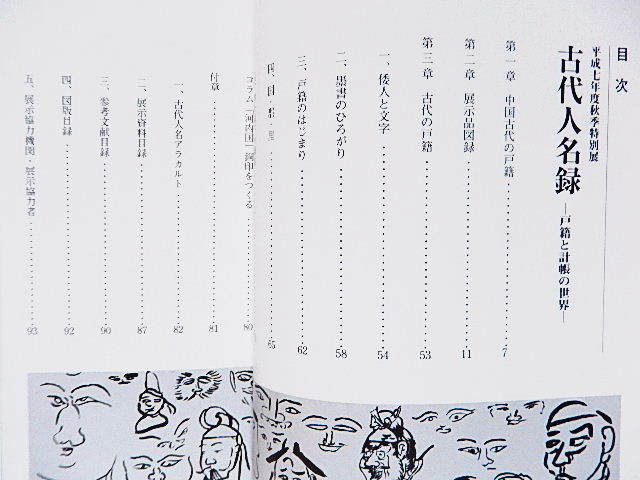 目次
平成七年度秋季特別展
古代人名録
―戸籍と計帳の世界―
第一章 中国古代の戸籍 7
第二章 展示品図録 11
第三章 古代の戸籍 53
一、倭人と文字 54
二、墨書のひろがり 58
三、戸籍のはじまり 62
四、国・郡・里 65
コラム「河内国」銅印をつくる 80
付章 81
一、古代人名アラカルト 82
二、展示資料目録 87
三、参考文献目録 90
四、図版目録 92
五、展示協力機関・展示協力者 93